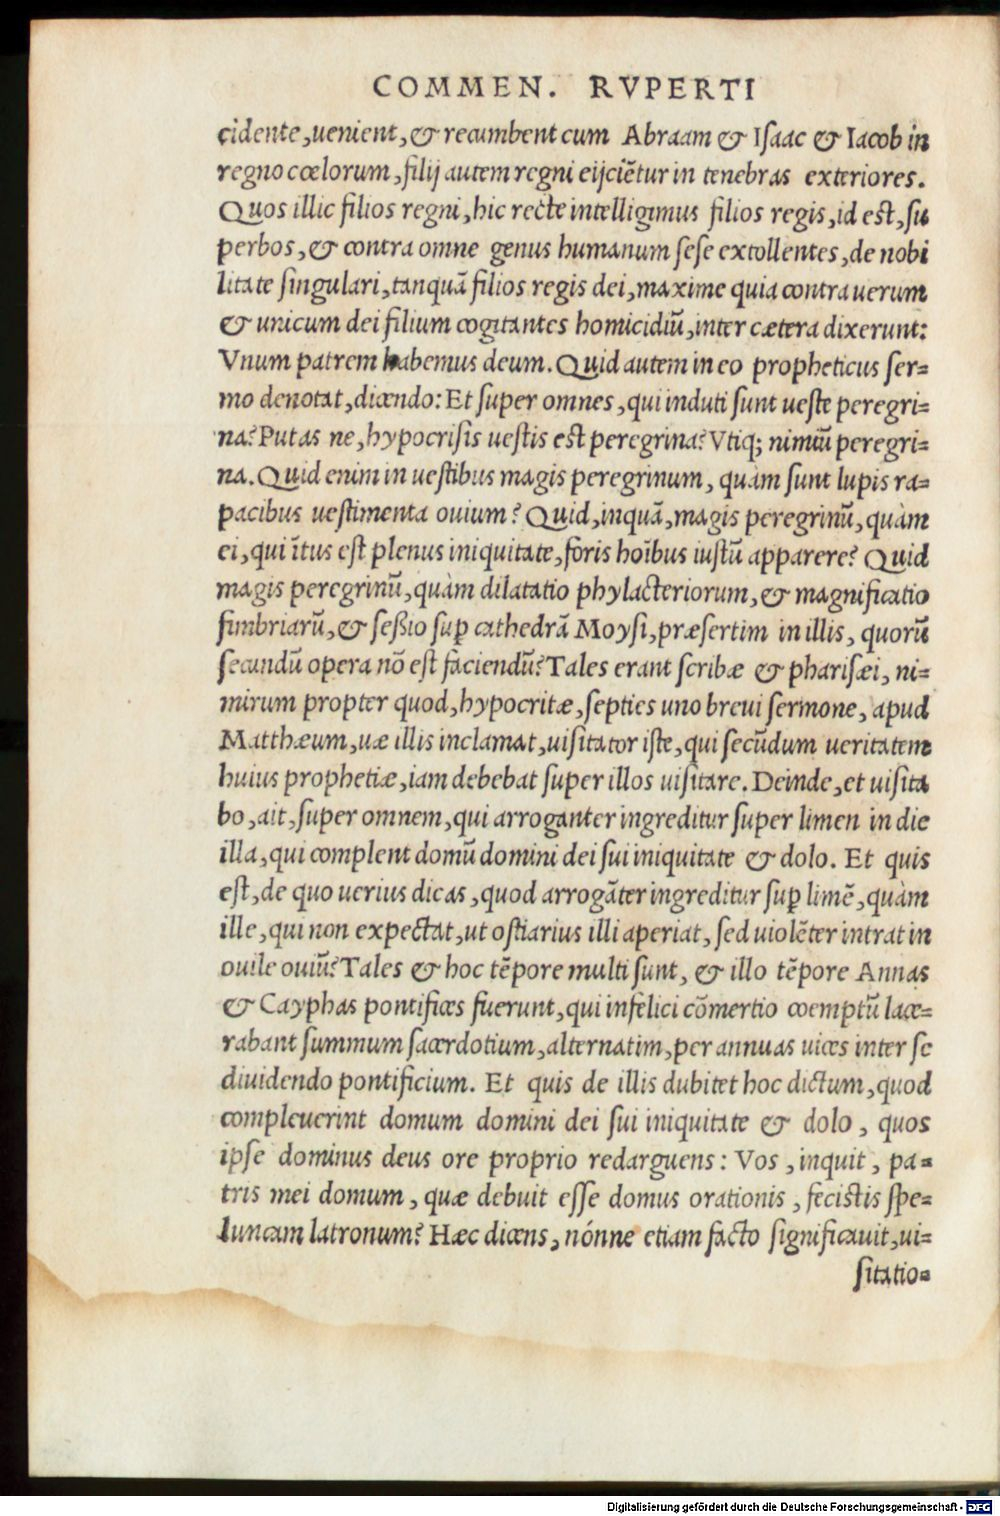 COMMEN. RVPERTI
cidente, uenient, & recumbent cum Abraam & Isaac & Iacob in
regno cœlorum, filij autem regni eijciẽtur in tenebras exteriores.
Quos illic filios regni, hic recte intelligimus filios regis, id est, su
perbos, & contra omne genus humanum sese extollentes, de nobi
litate singulari, tanquã filios regis dei, maxime quia contra uerum
& unicum dei filium cogitantes homicidiũ, inter cætera dixerunt:
Vnum patrem habemus deum. Quid autem in eo propheticus ser=
mo denotat, dicendo: Et super omnes, qui induti sunt ueste peregri=
na? Putas ne, hypocrisis uestis est peregrina? Vtiq; nimiũ peregri=
na. Quid enim in uestibus magis peregrinum, quàm sunt lupis ra=
pacibus uestimenta ouium? Quid, inquã, magis peregrinũ, quàm
ei, qui ĩtus est plenus iniquitate, foris hoĩbus iustũ apparere? Quid
magis peregrinũ, quàm dilatatio phylacteriorum, & magnificatio
fimbriarũ, & seßio sup̱ cathedrã Moysi, præsertim in illis, quorũ
secundũ opera nõ est faciendũ? Tales erant scribæ & pharisæi, ni=
mirum propter quod, hypocritæ, septies uno breui sermone, apud
Matthæum, uæ illis inclamat, uisitator iste, qui secũdum ueritatem
huius prophetiæ, iam debebat super illos uisitare. Deinde, et uisita
bo, ait, super omnem, qui arroganter ingreditur super limen in die
illa, qui complent domũ domini dei sui iniquitate & dolo. Et quis
est, de quo uerius dicas, quod arrogãter ingreditur sup̱ limẽ, quàm
ille, qui non expectat, ut ostiarius illi aperiat, sed uiolẽter intrat in
ouile ouiũ? Tales & hoc tẽpore multi sunt, & illo tẽpore Annas
& Cayphas pontifices fuerunt, qui infelici cõmertio coemptũ lace=
rabant summum sacerdotium, alternatim, per annuas uices inter se
diuidendo pontificium. Et quis de illis dubitet hoc dictum, quod
compleuerint domum domini dei sui iniquitate & dolo, quos
ipse dominus deus ore proprio redarguens: Vos, inquit, pa=
tris mei domum, quæ debuit esse domus orationis, fecistis spe=
luncam latronum? Hæc dicens, nónne etiam facto significauit, ui=
sitatio=
Digitalisierung gefördert durch die Deutsche Forschungsgemeinschaft - DFG